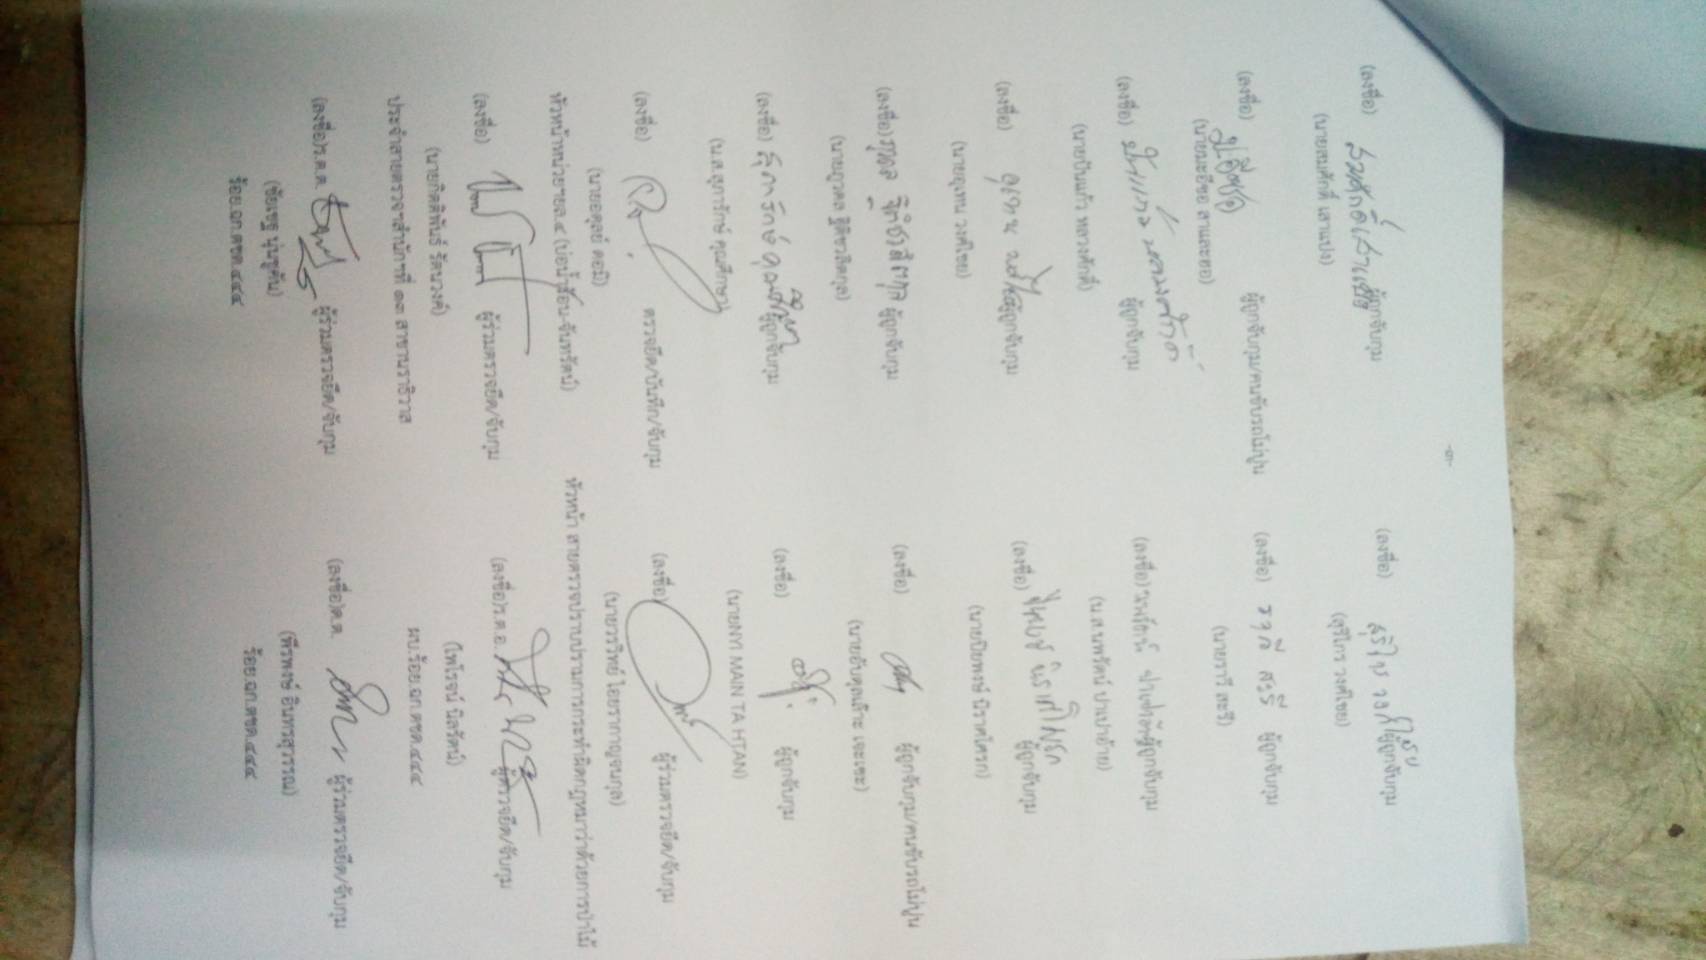 -๓-
(ลงชื่อ) สมศักดิ์ เสาแปง ผู้ถูกจับกุม
(นายสมศักดิ์ เสาแปง)
(ลงชื่อ) สุริโกร วงศ์ไชย ผู้ถูกจับกุม
(สุริโกร วงศ์ไชย)
(ลงชื่อ) ผู้ถูกจับกุม/คนขับรถโม่ปูน
(นายมะยีซอ สาและหอ)
(ลงชื่อ) ราวี สะรี ผู้ถูกจับกุม
(นายราวี สะรี)
(ลงชื่อ) ปันแก้ว หลวงศักดิ์ ผู้ถูกจับกุม
(นายปันแก้ว หลวงศักดิ์)
(ลงชื่อ) ผู้ถูกจับกุม
(น.ส.นพรัตน์ ปาเปาอ้าย)
(ลงชื่อ) ผู้ถูกจับกุม
(นายอุเทน วงศ์ไชย)
(ลงชื่อ) ผู้ถูกจับกุม
(นายปิยพงษ์ นิราศโศรก)
(ลงชื่อ) ผู้ถูกจับกุม
(นายภูวดล ฐิติชวลิตกุล)
(ลงชื่อ) ผู้ถูกจับกุม/คนขับรถโม่ปูน
(นายอับดุลเล๊าะ เจะเซะ)
(ลงชื่อ) สุภารักษ์ คุณศึกษา ผู้ถูกจับกุม
(น.ส.สุภารักษ์ คุณศึกษา)
(ลงชื่อ) ผู้ถูกจับกุม
(นายNYI MAIN TA HTAN)
(ลงชื่อ) ตรวจยึด/บันทึก/จับกุม
(นายอดุลย์ ดอมิ)
หัวหน้าหน่วยฯยล.๔ (บ่อน้ำร้อน-จันทรัตน์)
(ลงชื่อ) ผู้ร่วมตรวจยึด/จับกุม
(นายวรวิทย์ ไอยรากาญจนกุล)
หัวหน้า สายตรวจปราบปรามการกระทำผิดกฎหมายว่าด้วยการป่าไม้
(ลงชื่อ) ผู้ร่วมตรวจยึด/จับกุม
(นายกิตติพันธ์ รัตนวงศ์)
ประจำสายตรวจฯสำนักฯที่ ๑๓ สาขานราธิวาส
(ลงชื่อ)ร.ต.อ. ผู้ตรวจยึด/จับกุม
(ไพโรจน์ นิลรัตน์)
ผบ.ร้อย.ฉก.ตชด.๔๔๔
(ลงชื่อ)ร.ต.ต. ผู้ร่วมตรวจยึด/จับกุม
(ชัยเชฐ นุ่นชูคัน)
ร้อย.ฉก.ตชด.๔๔๔
(ลงชื่อ)ด.ต. ผู้ร่วมตรวจยึด/จับกุม
(พีรพงษ์ อินทรสุวรรณ)
ร้อย.ฉก.ตชด.๔๔๔